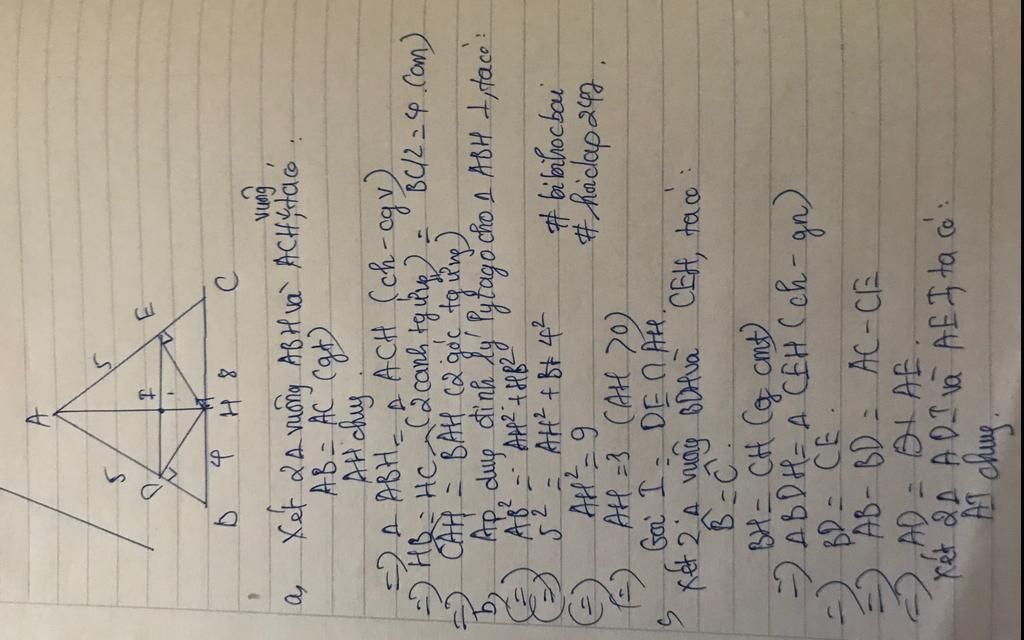 A
5
5
D
I
E
B
4
H
8
C
a, Xét 2Δ vuông ABH và ACH, ta có:
vuông
AB = AC (gt)
AH chung
=) Δ ABH = Δ ACH (ch-cgv)
=) HB = HC (2 cạnh tg ứng) = BC/2 = 4 (cm)
=) CAH = BAH (2 góc tg ứng)
b) Áp dụng định lý Pytago cho Δ ABH ⊥, ta có:
(=) AB² = AH² + HB²
(=) 5² = AH² + BH 4²
(=) AH² = 9
(=) AH = 3 (AH > 0)
# bibihocbai
# hoidap247
Gọi I = DE ∩ AH.
c, Xét 2 Δ vuông BDH và CEH, ta có:
B = C
BH = CH (cmt)
=) Δ BDH = Δ CEH (ch-gn)
=) BD = CE.
=) AB - BD = AC - CE
=) AD = AE.
Xét 2Δ ADI và AEI, ta có:
AI chung